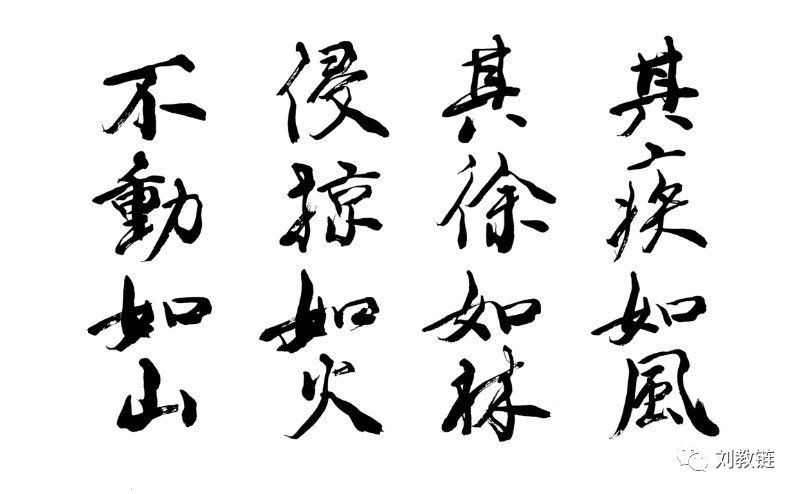 其疾如風
其徐如林
侵掠如火
不動如山
刘教链